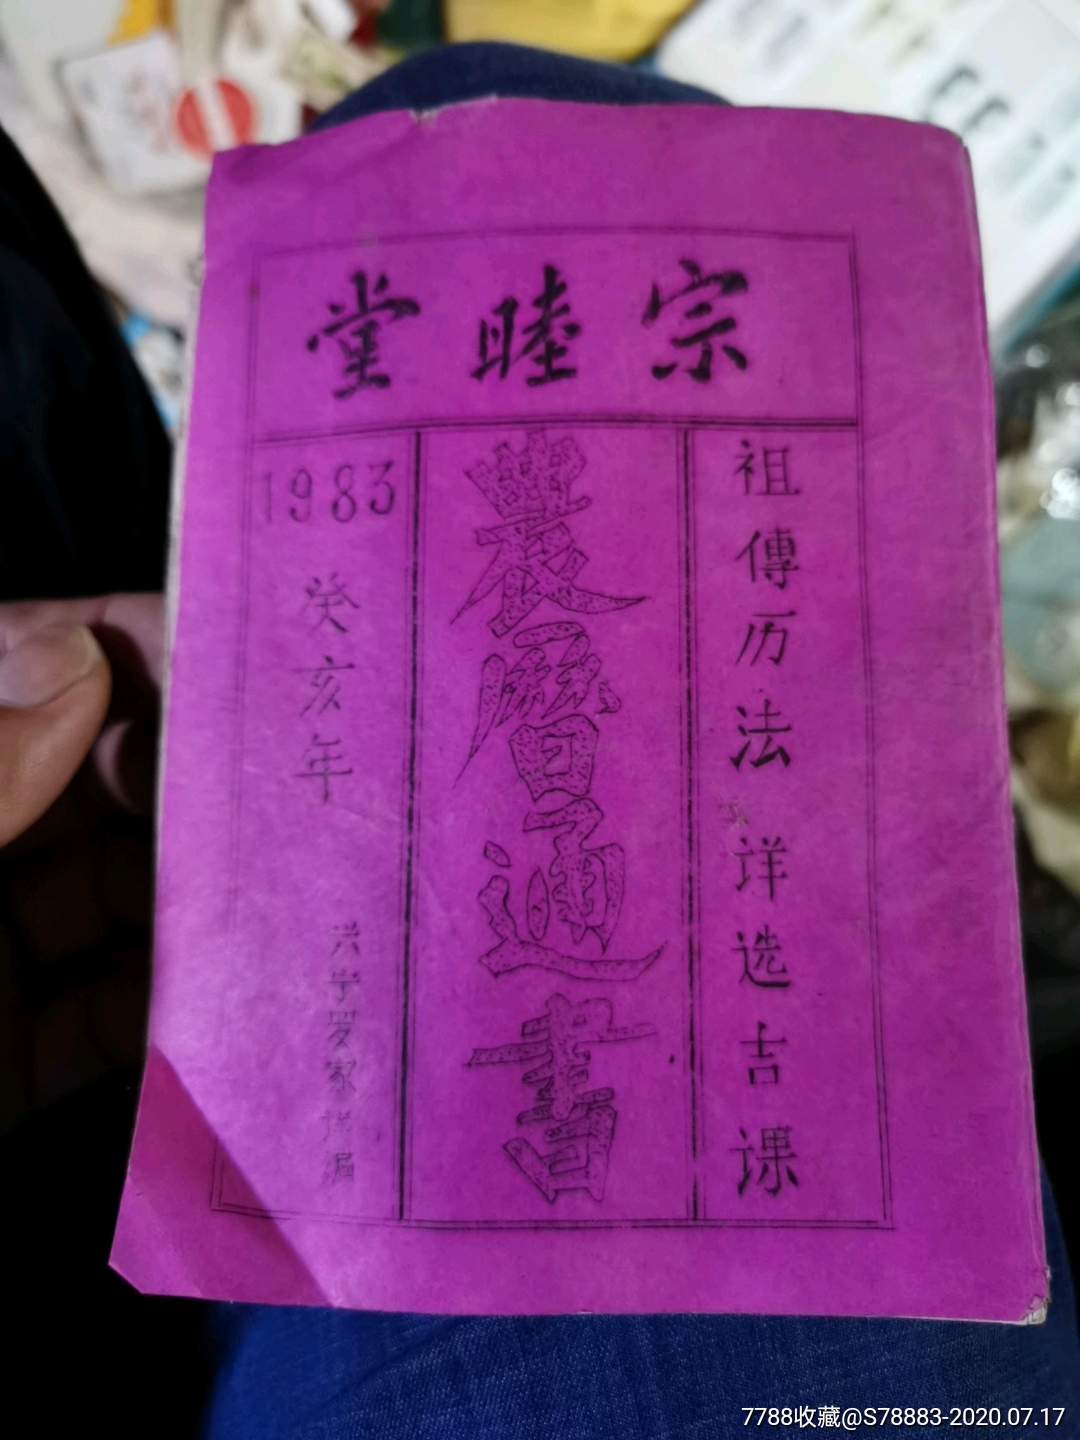 宗睦堂
祖傳历法 详选吉课
農曆通書
1983
癸亥年
兴宁罗家详编
7788收藏@S78883-2020.07.17